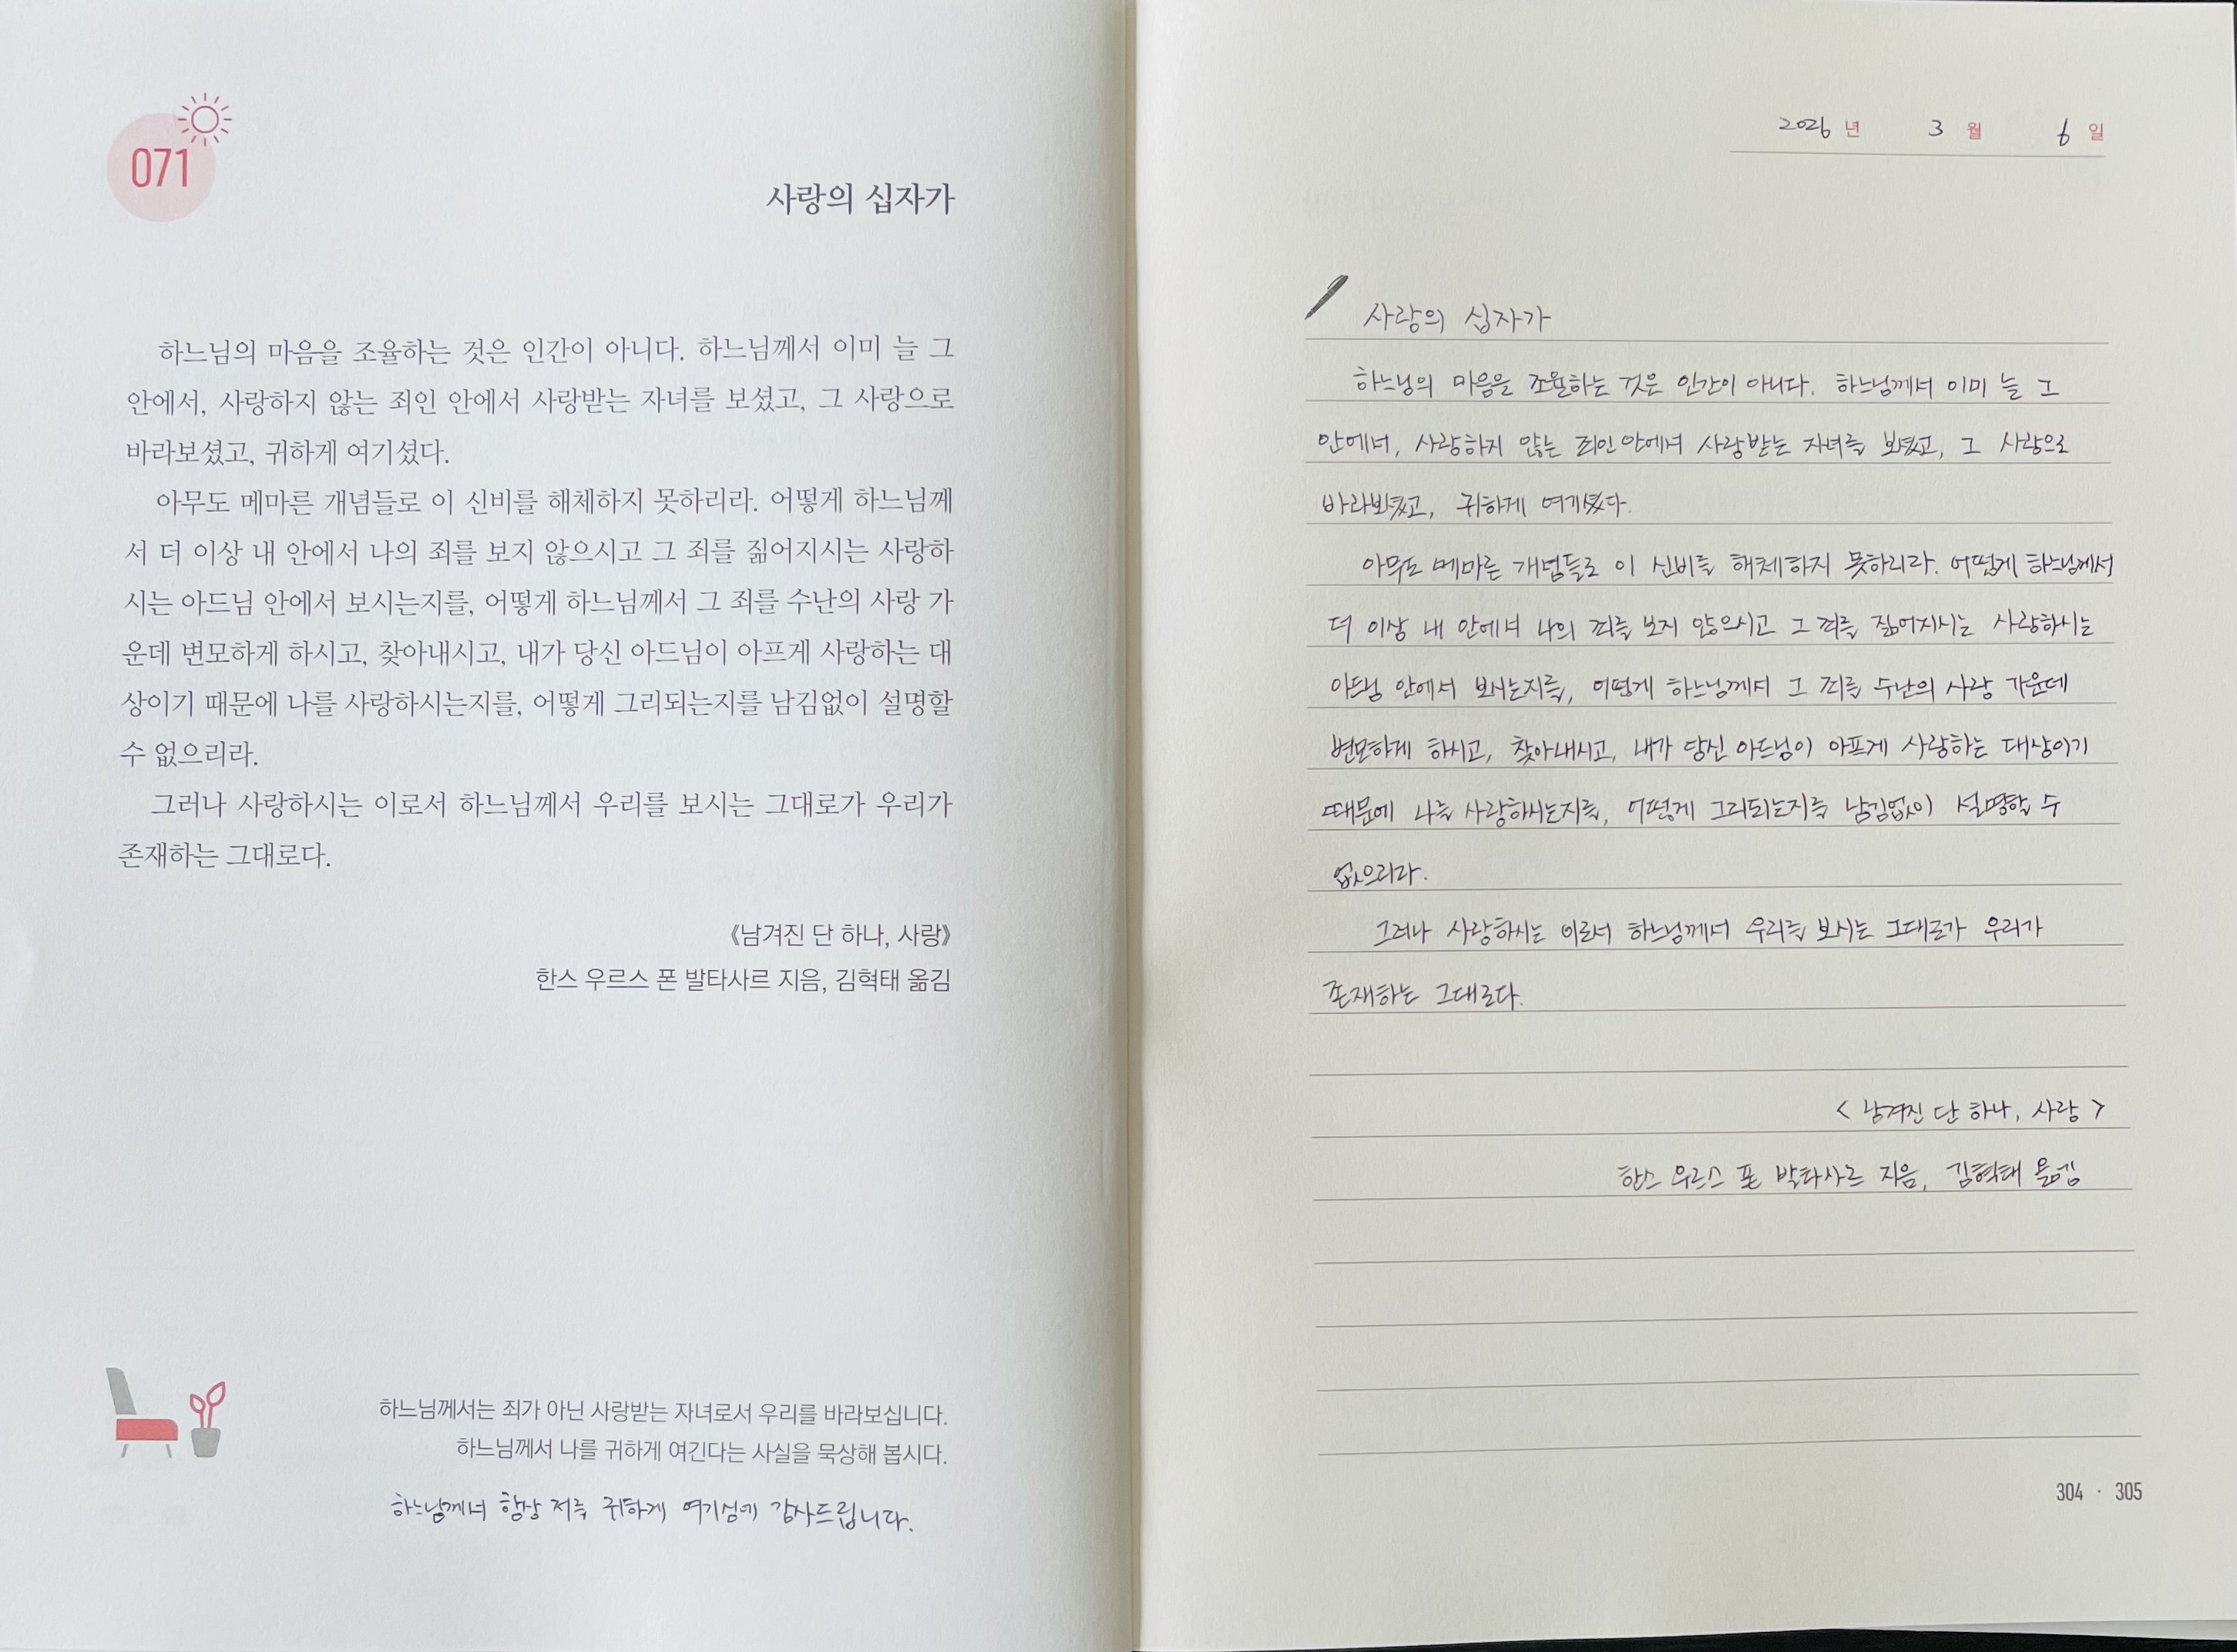 071
사랑의 십자가
하느님의 마음을 조율하는 것은 인간이 아니다. 하느님께서 이미 늘 그
안에서, 사랑하지 않는 죄인 안에서 사랑받는 자녀를 보셨고, 그 사랑으로
바라보셨고, 귀하게 여기셨다.
아무도 메마른 개념들로 이 신비를 해체하지 못하리라. 어떻게 하느님께
서 더 이상 내 안에서 나의 죄를 보지 않으시고 그 죄를 짊어지시는 사랑하
시는 아드님 안에서 보시는지를, 어떻게 하느님께서 그 죄를 수난의 사랑 가
운데 변모하게 하시고, 찾아내시고, 내가 당신 아드님이 아프게 사랑하는 대
상이기 때문에 나를 사랑하시는지를, 어떻게 그리되는지를 남김없이 설명할
수 없으리라.
그러나 사랑하시는 이로서 하느님께서 우리를 보시는 그대로가 우리가
존재하는 그대로다.
《남겨진 단 하나, 사랑》
한스 우르스 폰 발타사르 지음, 김혁태 옮김
하느님께서는 죄가 아닌 사랑받는 자녀로서 우리를 바라보십니다.
하느님께서 나를 귀하게 여긴다는 사실을 묵상해 봅시다.
하느님께서 항상 저를 귀하게 여기심에 감사드립니다.
2026 년 3 월 6 일
사랑의 십자가
하느님의 마음을 조율하는 것은 인간이 아니다. 하느님께서 이미 늘 그
안에서, 사랑하지 않는 죄인 안에서 사랑받는 자녀를 보셨고, 그 사랑으로
바라보셨고, 귀하게 여기셨다.
아무도 메마른 개념들로 이 신비를 해체하지 못하리라. 어떻게 하느님께서
더 이상 내 안에서 나의 죄를 보지 않으시고 그 죄를 짊어지시는 사랑하시는
아드님 안에서 보시는지를, 어떻게 하느님께서 그 죄를 수난의 사랑 가운데
변모하게 하시고, 찾아내시고, 내가 당신 아드님이 아프게 사랑하는 대상이기
때문에 나를 사랑하시는지를, 어떻게 그리되는지를 남김없이 설명할 수
없으리라.
그러나 사랑하시는 이로서 하느님께서 우리를 보시는 그대로가 우리가
존재하는 그대로다.
< 남겨진 단 하나, 사랑 >
한스 우르스 폰 발타사르 지음, 김혁태 옮김
304 · 305